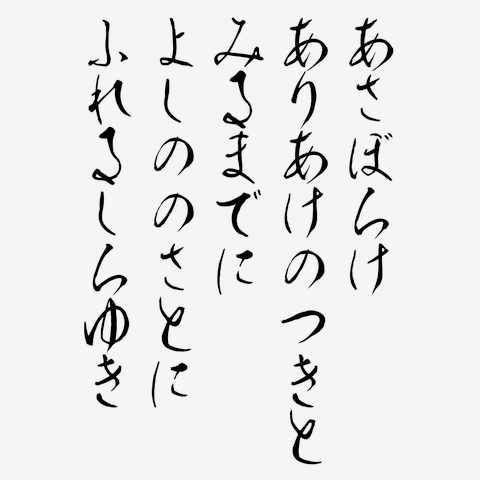 あさぼらけ
ありあけのつきと
みるまでに
よしののさとに
ふれるしらゆき